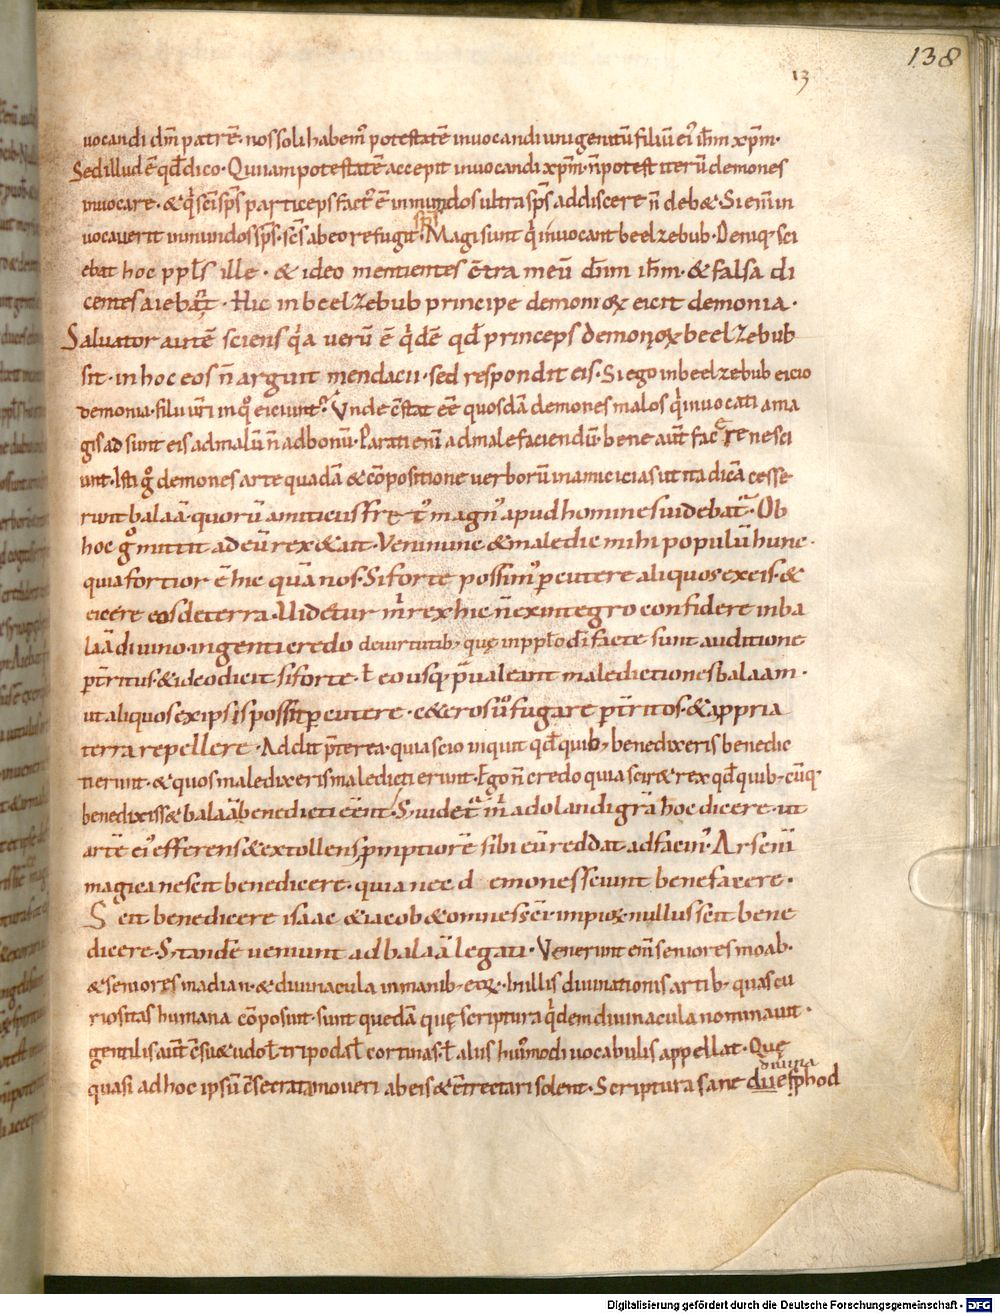 138
13
uocandi dm̄ patrē· nos soli habem᾽ potestatē inuocandi unigenitū filiū ei᾽ ih̄m xp̄m·
Sed illud ē qd̄ dico· Qui iam potestatē accepit inuocandi xp̄m· n̄ potest iterū demones
inuocare· & q̇ sc̄i sp̄s particeps fact᾽ ē inmundos ultra sp̄s addiscere n̄ deb&· Si em̄ in
uocauerit inmundos sp̄s· sc̄s sp̄s ab eo refugit· Magi sunt q̇ inuocant beelzebub· Deniq; sci
ebat hoc ppl̄s ille· & ideo mentientes c̄tra meū dn̄m ih̄m· & falsa di
centes aiebant· Hic in beelzebub principe demoniorꝝ eicit demonia·
Saluator autē sciens q̇a uerū ē q̇dē qd̄ princeps demoniorꝝ beelzebub
sit· in hoc eos n̄ arguit mendacii· sed respondit eis· Si ego in beelzebub eicio
demonia· filii ur̄i in quo eiciunt? Vnde c̄stat eē quosdā demones malos q̇ inuocati a ma
gis adsunt eis ad malū n̄ ad bonū· Parati eni ad male faciendū· bene aūt facere nesci
unt· Isti g̊ demones arte quadā & cōpositione uerborū inamicicias ut ita dicā cesse
runt balaā· quorū amicicus fret᾽ magn᾽ apud homines uidebat᷑· Ob
hoc g̊ mittit ad eū rex & ait· Veni nunc & maledic mihi populū hunc·
quia fortior ē hic quā nos· Si forte possim᾽ p̲cutere aliquos ex eis· &
eicere eos de terra· Uidetur m̄ rex hic n̄ ex integro confidere in ba
laā diuino· ingenti credo de uirtutib; quę in pplo dī facte sunt auditione
p̲t̄ritus· & ideo dicit si forte· ł eo usq; p̄ualeant maledictiones balaam·
ut aliquos ex ipsis possit p̲cutere· c&eros u᷑o fugare p̲t̄ritos· & a ppria
terra repellere· Addit p̄terea· quia scio inquit qd̄ quib; benedixeris benedic
ti erunt· & quos maledixeris maledicti erunt· Ego n̄ credo quia scir& rex qd̄ quib; cūq;
benedixiss& balaā benedicti eēnt· S; uidet᷑ m̄ adolandi grā hoc dicere· ut
artē ei᾽ efferens & extollens p̲mptiorē sibi eū reddat ad facin᾽· Ars enī
magica nescit benedicere· quia nec demones sciunt benefacere·
Scit benedicere isaac & iacob & omnes sc̄i· impiorꝝ nullus scit bene
dicere· S; tandē ueniunt ad balaā legati· Venerunt em̄ seniores moab·
& seniores madian· & diuinacula in manib; eorꝝ· In illis diuinationis artib; quas cu
riositas humana cōposuit· sunt quedā quę scriptura q̇dem diuinacula nominauit·
gentilis aūt c̄su&udo ł tripodas ł cortinas· ł aliis hui᾽modi uocabulis appellat· Quę
quasi ad hoc ipsū c̄secrata moueri ab eis & c̄trectari solent· Scriptura sane diuina ephod
Digitalisierung gefördert durch die Deutsche Forschungsgemeinschaft - DFG